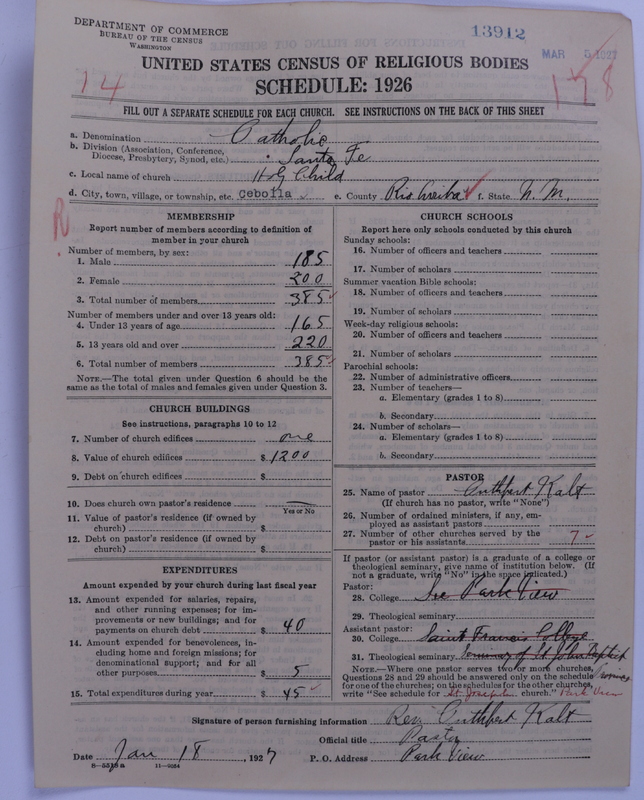 DEPARTMENT OF COMMERCE
BUREAU OF THE CENSUS
WASHINGTON
13912
MAR 5 1927
UNITED STATES CENSUS OF RELIGIOUS BODIES
SCHEDULE: 1926
14
178
FILL OUT A SEPARATE SCHEDULE FOR EACH CHURCH. SEE INSTRUCTIONS ON THE BACK OF THIS SHEET
a. Denomination Catholic
b. Division (Association, Conference, Diocese, Presbytery, Synod, etc.) Santa Fe
c. Local name of church H-G Child
d. City, town, village, or township, etc. Cebolla e. County Rio Arriba f. State N. M.
R
MEMBERSHIP
Report number of members according to definition of
member in your church
Number of members, by sex:
1. Male 185
2. Female 200
3. Total number of members 385
Number of members under and over 13 years old:
4. Under 13 years of age 165
5. 13 years old and over 220
6. Total number of members 385
NOTE.—The total given under Question 6 should be
same as the total of males and females given under Question 3.
CHURCH BUILDINGS
See instructions, paragraphs 10 to 12
7. Number of church edifices one
8. Value of church edifices $ 1200
9. Debt on church edifices $
10. Does church own pastor's residence
Yes or No
11. Value of pastor's residence (if owned by
church) $
12. Debt on pastor's residence (if owned by
church) $
EXPENDITURES
Amount expended by your church during last fiscal year
13. Amount expended for salaries, repairs,
and other running expenses; for im-
provements or new buildings; and for
payments on church debt $ 40
14. Amount expended for benevolences, in-
cluding home and foreign missions; for
denominational support; and for all
other purposes $ 5
15. Total expenditures during year $ 45
CHURCH SCHOOLS
Report here only schools conducted by this church
Sunday schools:
16. Number of officers and teachers
17. Number of scholars
Summer vacation Bible schools:
18. Number of officers and teachers
19. Number of scholars
Week-day religious schools:
20. Number of officers and teachers
21. Number of scholars
Parochial schools:
22. Number of administrative officers
23. Number of teachers—
a. Elementary (grades 1 to 8)
b. Secondary
24. Number of scholars—
a. Elementary (grades 1 to 8)
b. Secondary
PASTOR
25. Name of pastor Cuthbert Kalt
(If church has no pastor, write "None")
26. Number of ordained ministers, if any, em-
ployed as assistant pastors
27. Number of other churches served by the
pastor or his assistants 7
If pastor (or assistant pastor) is a graduate of a college or
theological seminary, give name of institution below. (If
not a graduate, write "No" in the space indicated.)
Pastor:
28. College See Park View
29. Theological seminary
Assistant pastor:
30. College Saint Francis College
31. Theological seminary Seminary of St John Baptist
NOTE.—Where one pastor serves two or more churches,
Questions 28 and 29 should be answered only on the schedule
for one of the churches; on the schedules for the other churches,
write "See schedule for St Joseph church." Park View
Signature of person furnishing information Rev. Cuthbert Kalt
Official title Pastor
Date Jan 18, 1927 P. O. Address Park View
11-9284